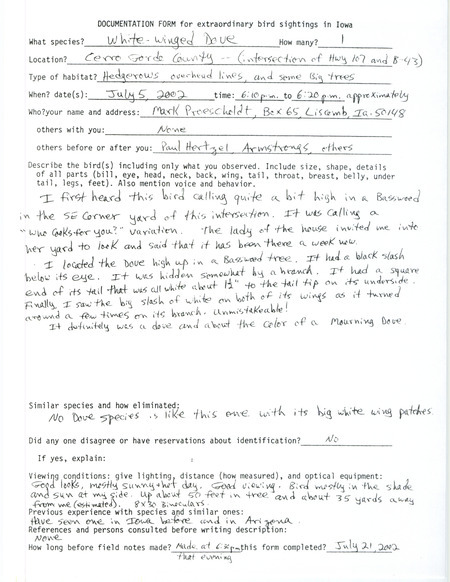 DOCUMENTATION FORM for extraordinary bird sightings in Iowa
What species? White-winged Dove How many? 1
Location? Cerro Gordo County -- (intersection of Hwy 107 and B-43)
Type of habitat? Hedgerows overhead lines, and some Big trees
When? date(s): July 5, 2002 time: 6:10 p.m. to 6:20 p.m. approximately
Who? your name and address: Mark Proescholdt, Box 65, Liscomb, Ia. 50148
others with you: None
others before or after you: Paul Hertzel, Armstrongs, others
Describe the bird(s) including only what you observed. Include size, shape, details
of all parts (bill, eye, head, neck, back, wing, tail, throat, breast, belly, under
tail, legs, feet). Also mention voice and behavior.
I first heard this bird calling quite a bit high in a Basswood
in the SE Corner yard of this intersection. It was calling a
"Who Cooks for you?" variation. The lady of the house invited me into
her yard to look and said that it has been there a week now.
I located the Dove high up in a Basswood tree. It had a black slash
below its eye. It was hidden somewhat by a branch. It had a square
end of its tail that was all white about 1½" to the tail tip on its underside.
Finally, I saw the big slash of white on both of its wings as it turned
around a few times on its branch. Unmistakeable!
It definitely was a dove and about the color of a Mourning Dove.
Similar species and how eliminated:
No Dove species is like this one with its big white wing patches.
Did any one disagree or have reservations about identification? No
If yes, explain:
Viewing conditions: give lighting, distance (how measured), and optical equipment:
Good looks, mostly sunny + hot day. Good viewing. Bird mostly in the shade
and sun at my side. Up about 50 feet in tree and about 35 yards away
from me (estimated). 8x30 Binoculars
Previous experience with species and similar ones:
Have seen one in Iowa before and in Arizona.
References and persons consulted before writing description:
None
How long before field notes made? Made at 6:20 pm this form completed? July 21, 2002
that evening